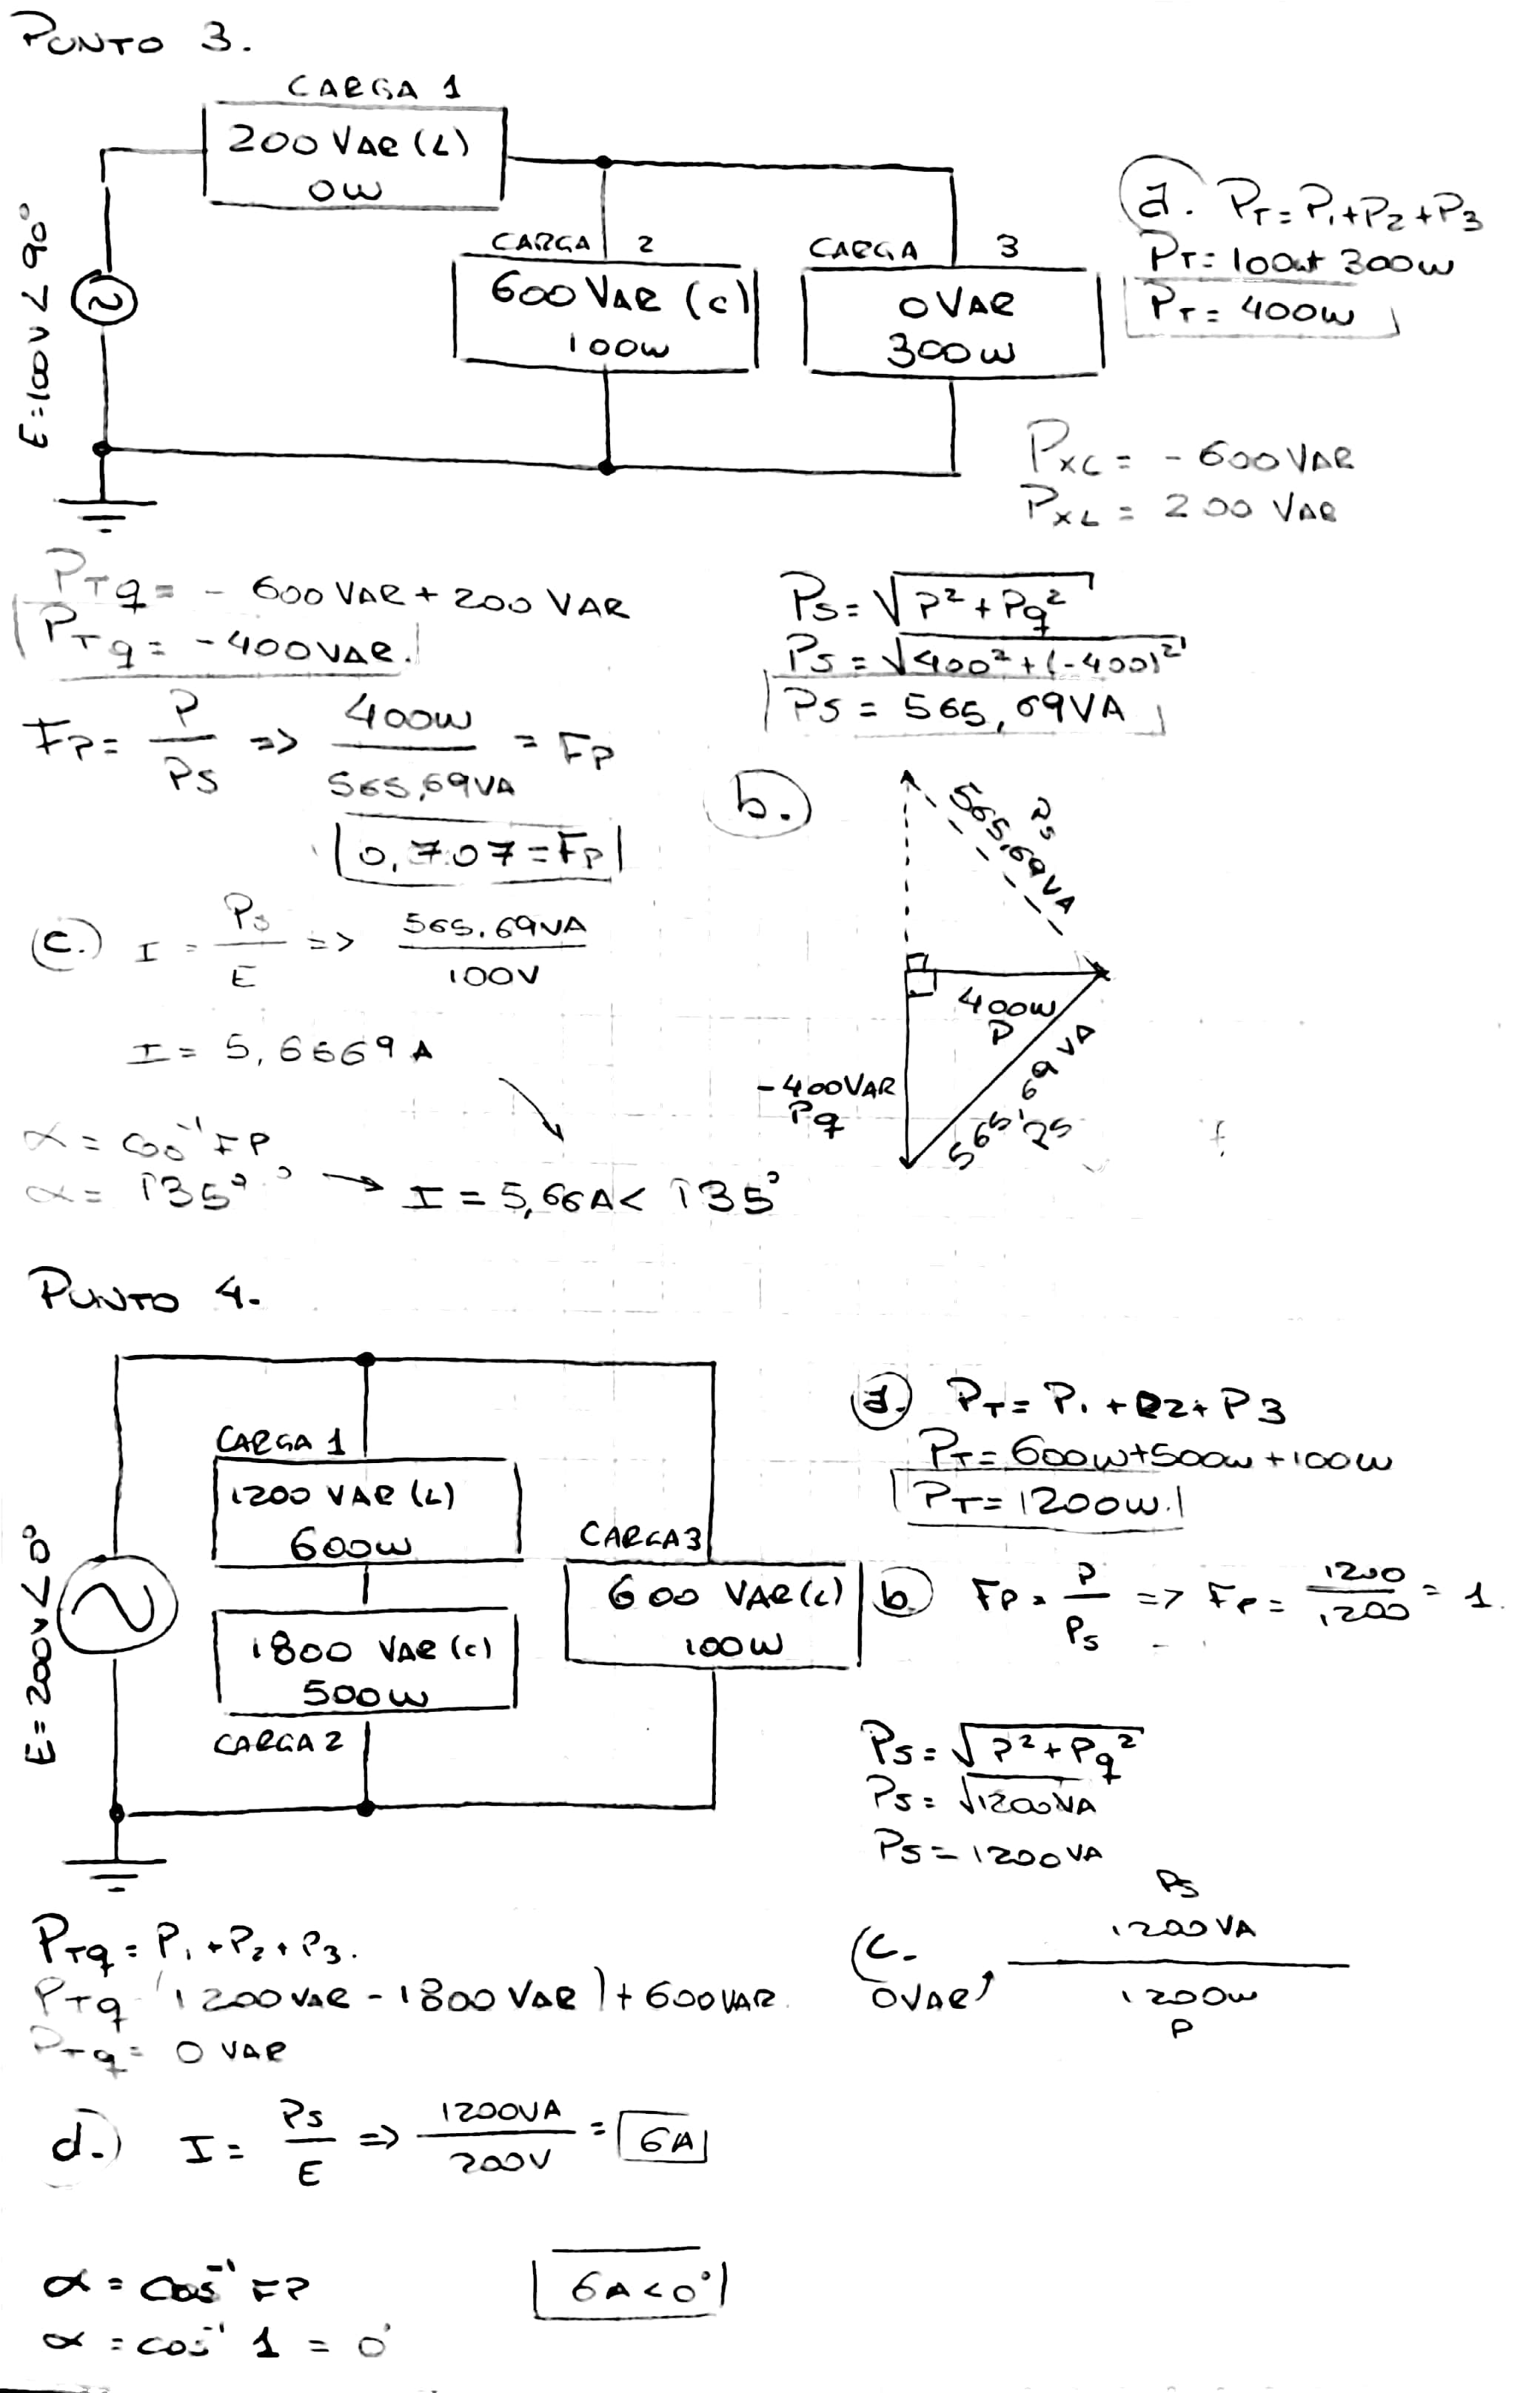 PUNTO 3.
CARGA 1
200 VAR (L)
0W
E=100V∠90°
CARGA 2
600 VAR (C)
100W
CARGA 3
0 VAR
300W
a. PT=P1+P2+P3
PT=100W+300W
PT=400W
PXC = -600VAR
PXL = 200 VAR
PTq = -600VAR+200 VAR
PTq = -400VAR.
PS=√P²+Pq²
PS=√400²+(-400)²
PS = 565,69VA
FP= P/PS => 400W/565,69VA = FP
0,707=FP
b.
PS
565,69VA
400W
P
-400VAR
Pq
565,69VA
PS
c. I = PS/E => 565,69VA/100V
I= 5,6569A
α = cos⁻¹ FP
α = 135° → I = 5,66A< 135°
PUNTO 4.
E=200V∠0°
CARGA 1
1200 VAR (L)
600W
1800 VAR (C)
500W
CARGA 2
CARGA3
600 VAR(L)
100W
a. PT= P1 +P2+ P3
PT=600W+500W+100W
PT=1200W.
b. FP = P/PS => FP= 1200/1200 = 1.
PS=√P²+Pq²
PS= √1200VA
PS=1200VA
PTq = P1+P2+P3.
PTq (1200VAR-1800VAR)+600VAR
PTq= 0 VAR
c.
PS
1200VA
0VAR
1200W
P
d.) I= PS/E => 1200VA/200V = 6A
α = cos⁻¹ FP
α = cos⁻¹ 1 = 0°
6A<0°